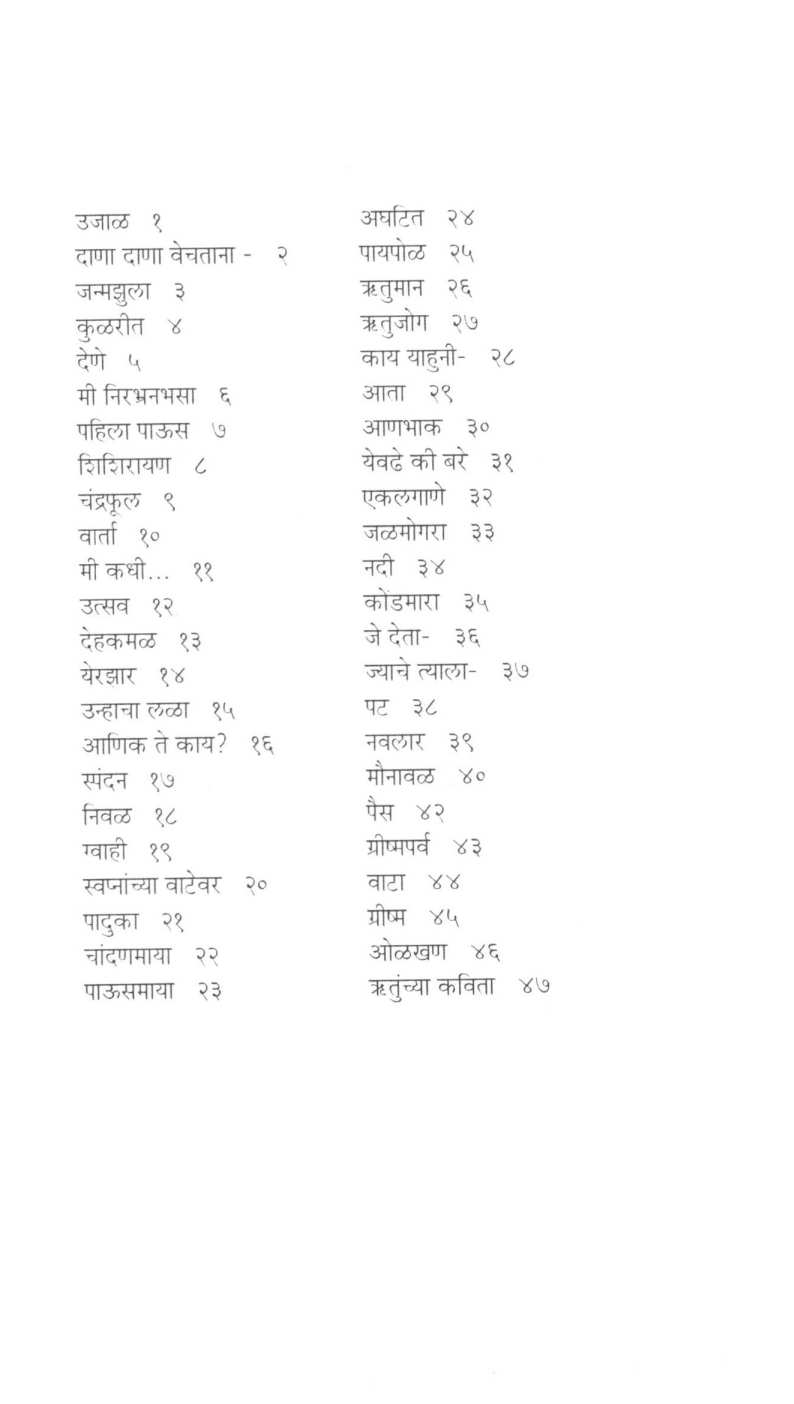 उजाळ १
दाणा दाणा वेचताना - २
जन्मझुला ३
कुळरीत ४
देणे ५
मी निरभ्रनभसा ६
पहिला पाऊस ७
शिशिरायण ८
चंद्रफूल ९
वार्ता १०
मी कधी... ११
उत्सव १२
देहकमळ १३
येरझार १४
उन्हाचा लळा १५
आणिक ते काय? १६
स्पंदन १७
निवळ १८
ग्वाही १९
स्वप्नांच्या वाटेवर २०
पादुका २१
चांदणमाया २२
पाऊसमाया २३
अघटित २४
पायपोळ २५
ऋतुमान २६
ऋतुजोग २७
काय याहुनी- २८
आता २९
आणभाक ३०
येवढे की बरे ३१
एकलगाणे ३२
जळमोगरा ३३
नदी ३४
कोंडमारा ३५
जे देता- ३६
ज्याचे त्याला- ३७
पट ३८
नवलार ३९
मौनावळ ४०
पैस ४२
ग्रीष्मपर्व ४३
वाटा ४४
ग्रीष्म ४५
ओळखण ४६
ऋतुंच्या कविता ४७